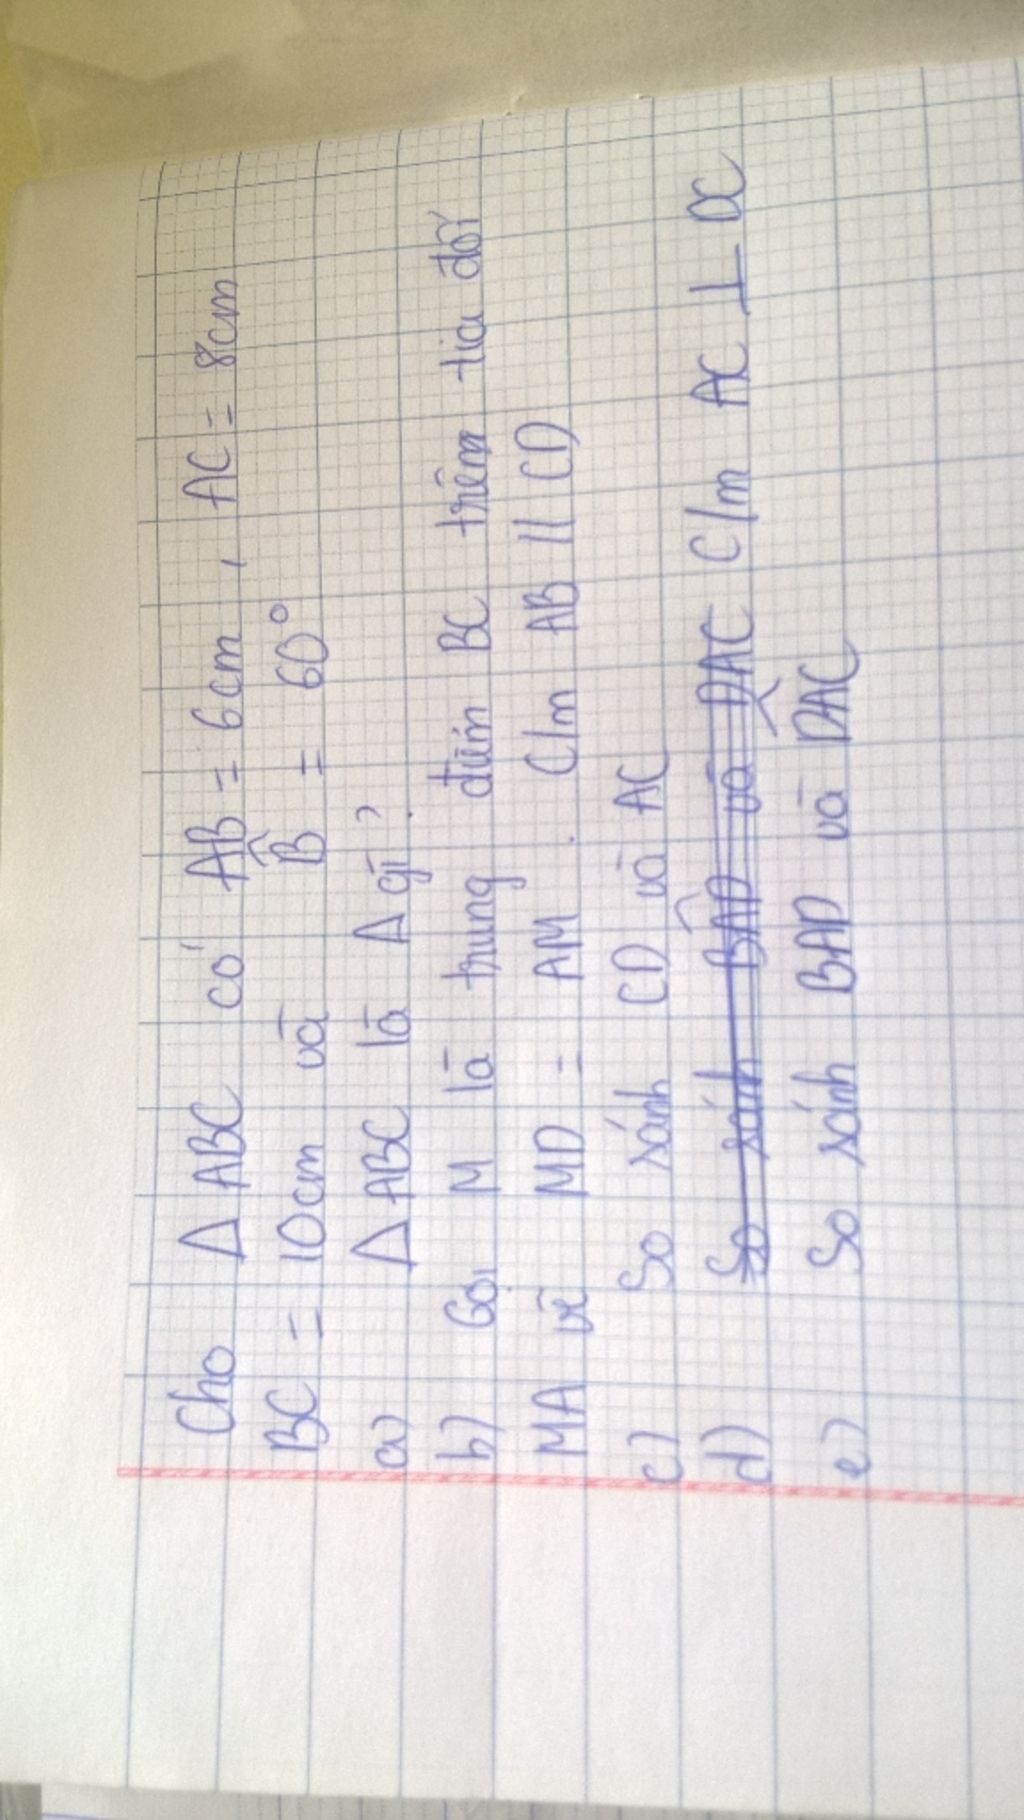 Cho Δ ABC có AB = 6cm, AC = 8cm
BC = 10cm và B̂ = 60°
a) Δ ABC là Δ gì?
b) Gọi M là trung điểm BC trêm tia đối
MA vẽ MD = AM. C/m AB // CD
c) So sánh CD và AC
d) So sánh BAD và DAC C/m AC ⊥ DC
e) So sánh BAD và DAC